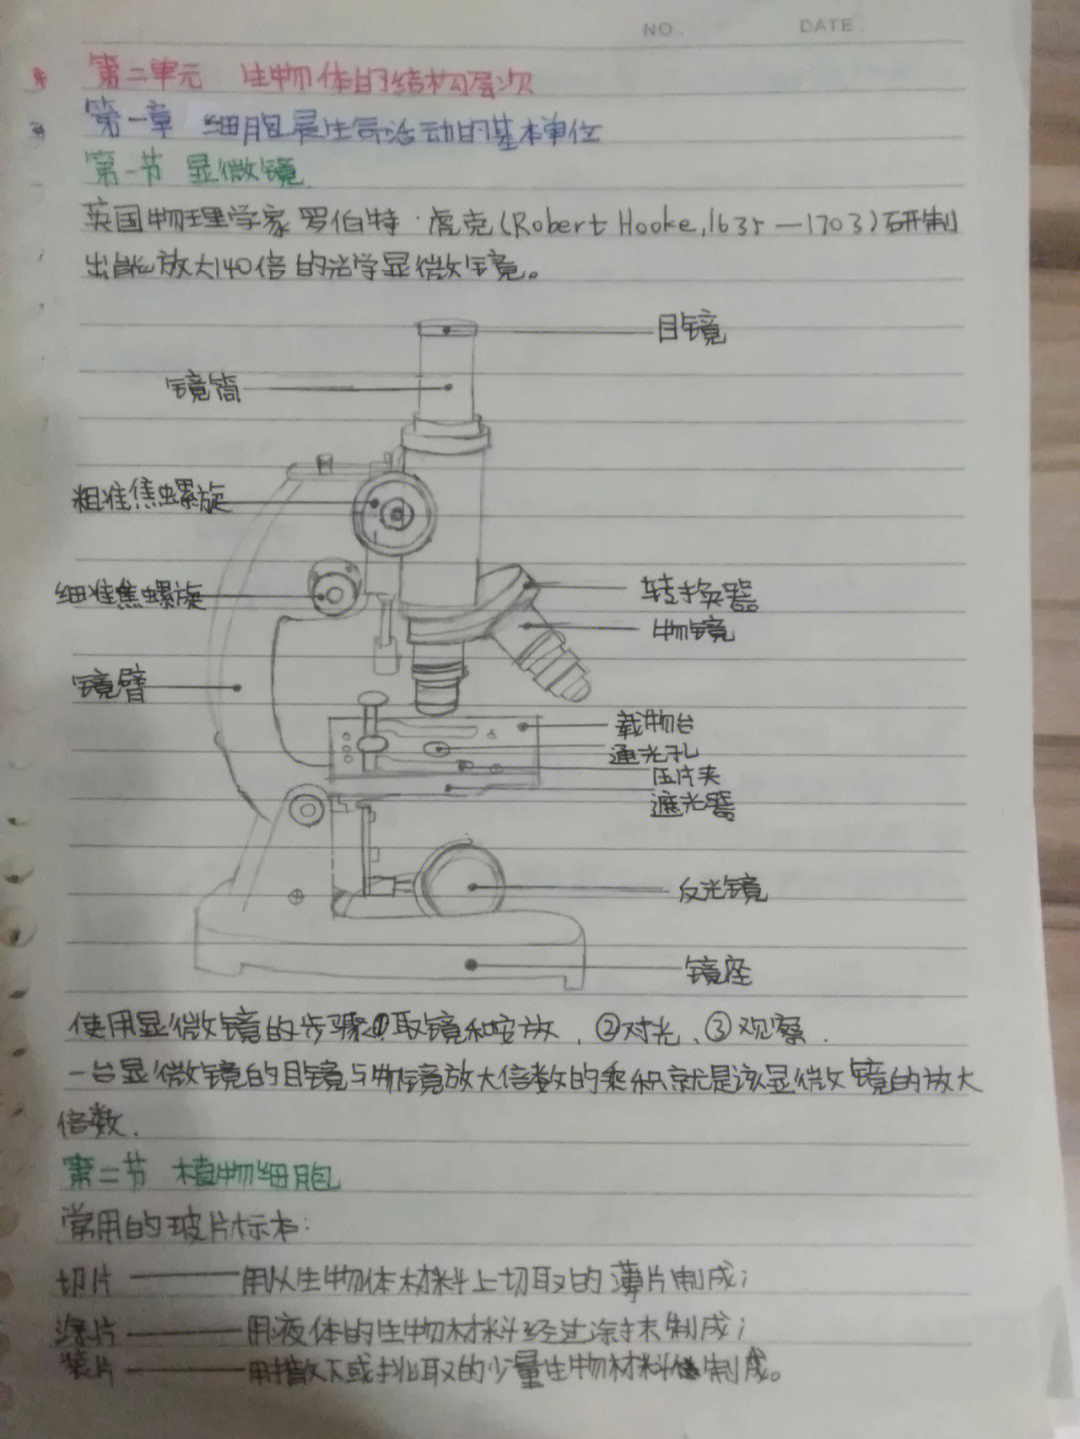 NO.
DATE.
第二单元 生物体的结构层次
第一章 细胞是生命活动的基本单位
第一节 显微镜
英国物理学家罗伯特·虎克(Robert Hooke,1635—1703)研制
出能放大140倍的光学显微镜。
目镜
镜筒
粗准焦螺旋
细准焦螺旋
转换器
物镜
镜臂
载物台
通光孔
压片夹
遮光器
反光镜
镜座
使用显微镜的步骤①取镜和安放、②对光、③观察.
一台显微镜的目镜与物镜放大倍数的乘积就是该显微镜的放大
倍数.
第二节 植物细胞
常用的玻片标本:
切片——用从生物体材料上切取的薄片制成;
涂片——用液体的生物材料经过涂抹制成;
装片——用撕下或挑取的少量生物材料制成。